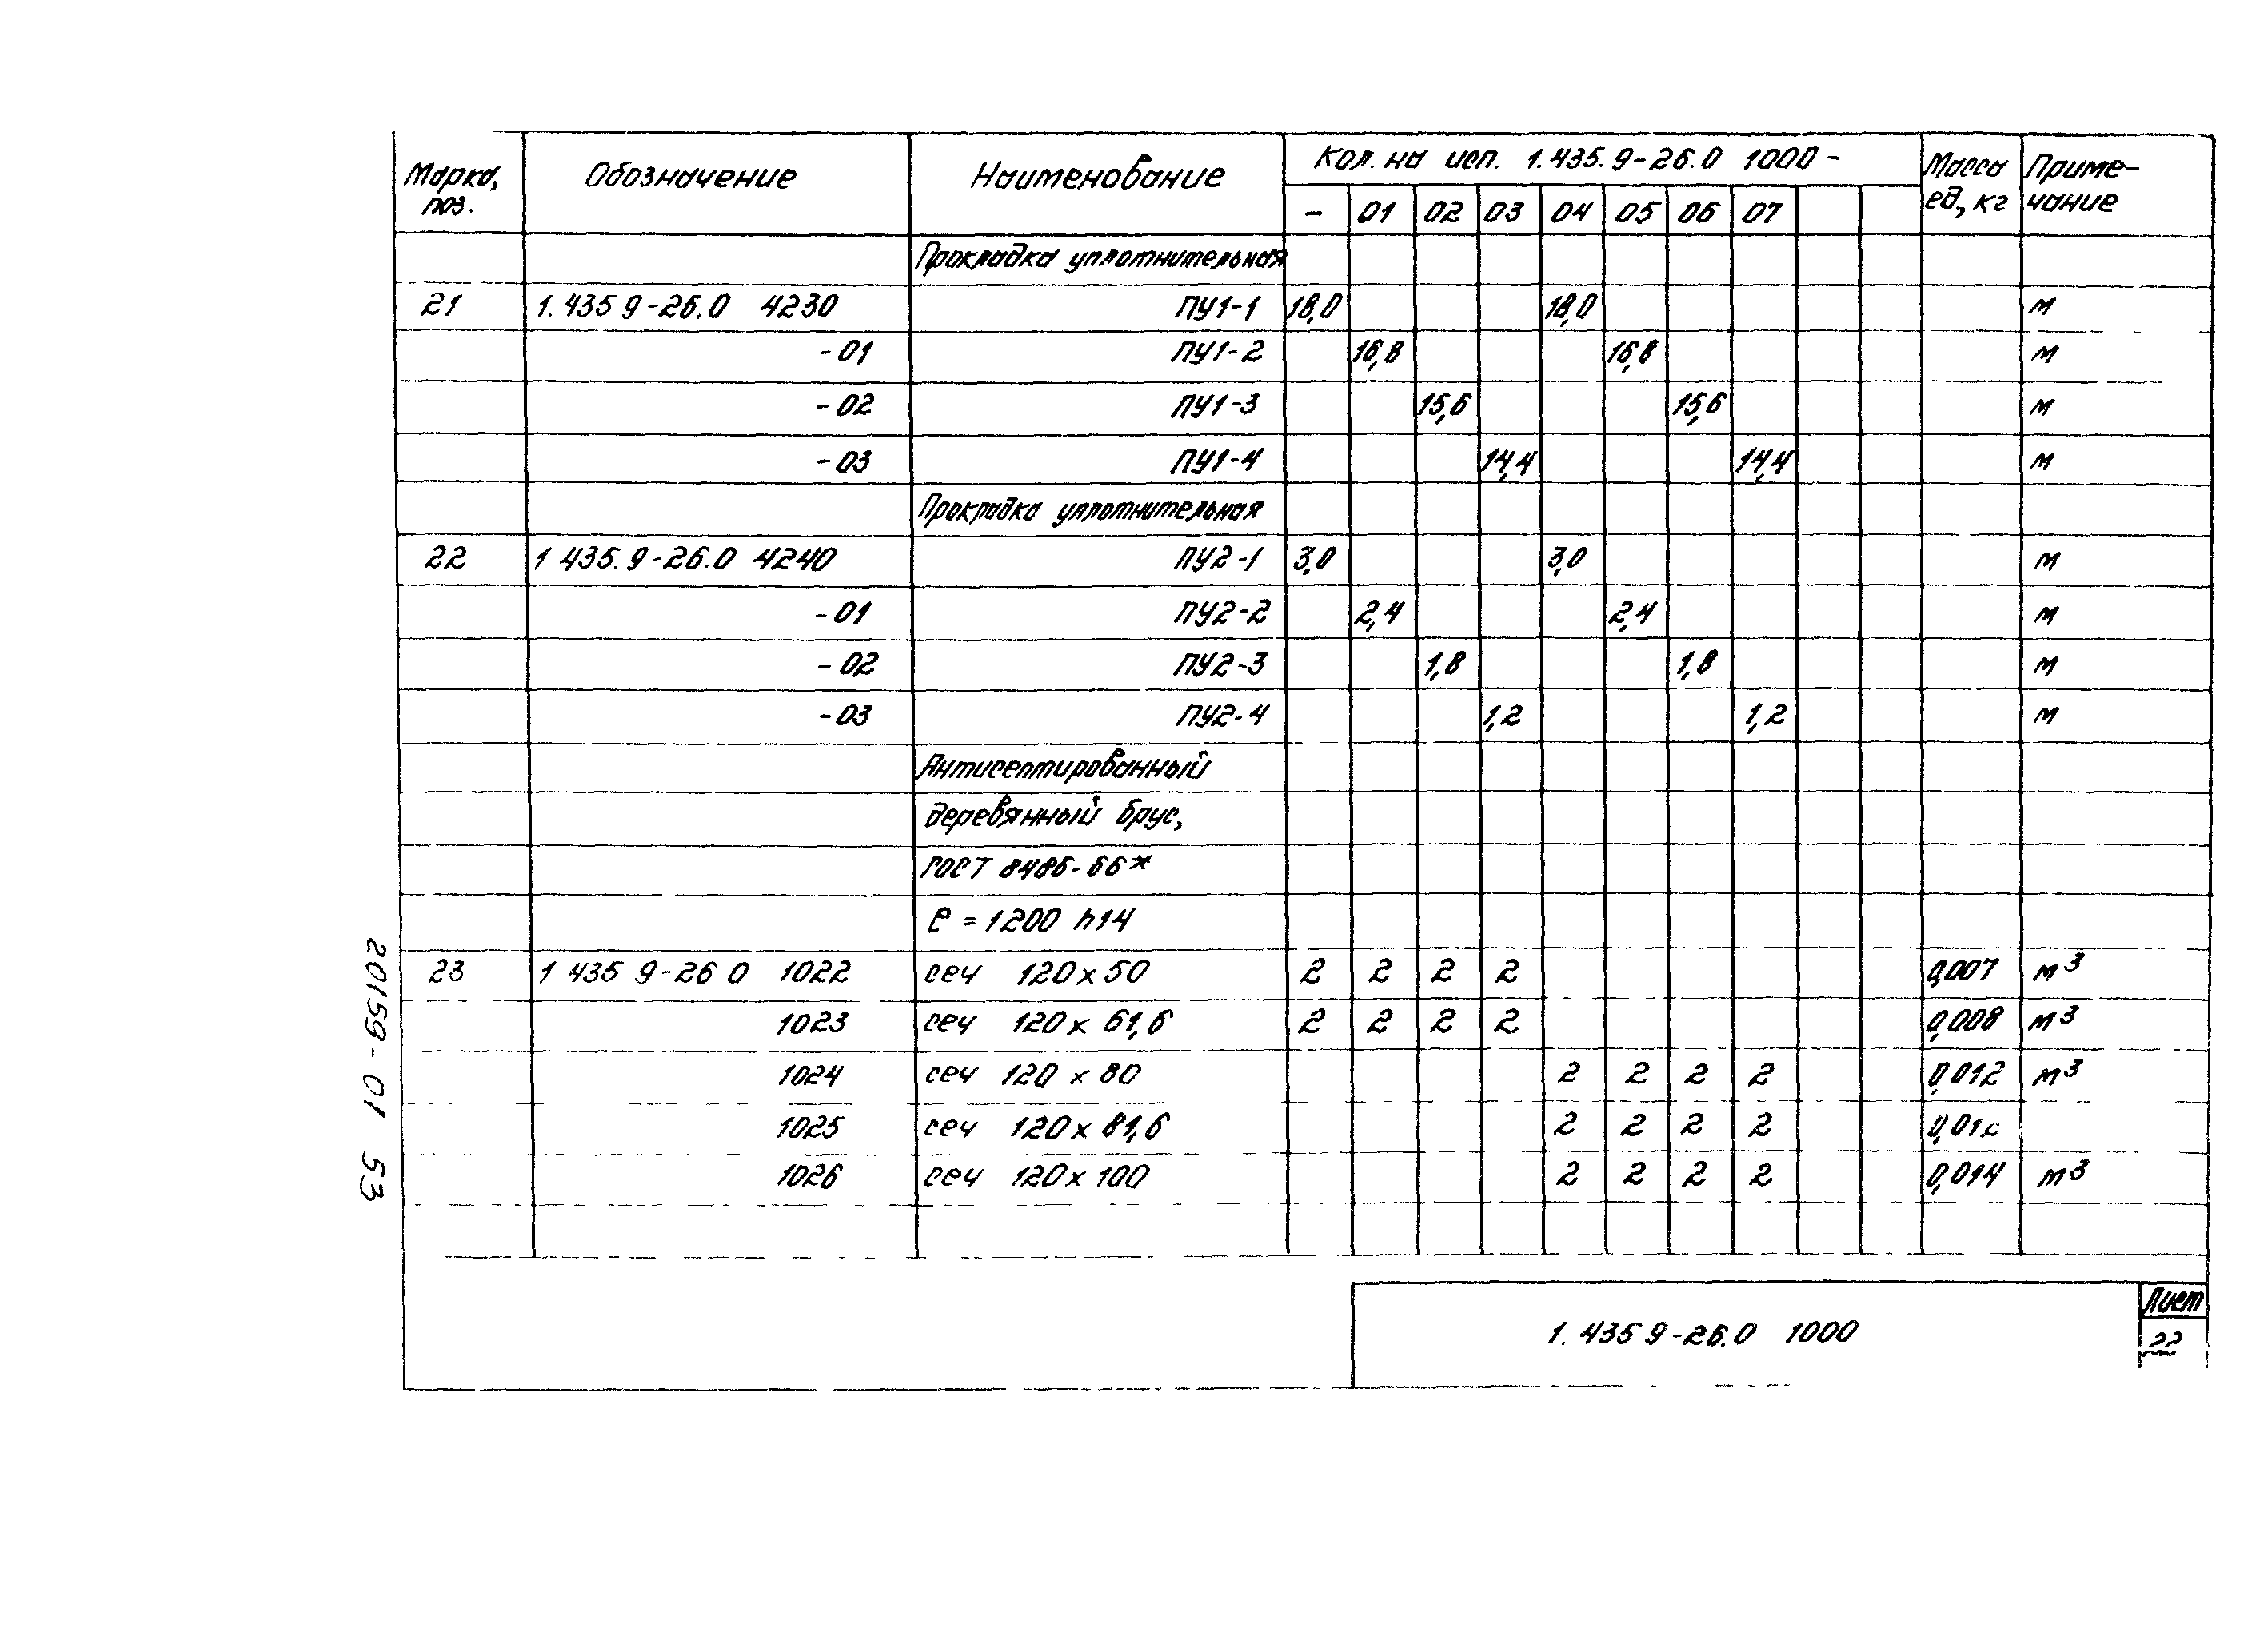 Марка, поз. Обозначение Наименование Кол. на исп. 1.435.9-26.0 1000 - Масса ед, кг Приме-чание
- 01 02 03 04 05 06 07
Прокладка уплотнительная
21 1.435 9-26.0 4230 ПУ1-1 18,0 18,0 м
-01 ПУ1-2 16,8 16,8 м
-02 ПУ1-3 15,6 15,6 м
-03 ПУ1-4 14,4 14,4 м
Прокладка уплотнительная
22 1 435.9-26.0 4240 ПУ2-1 3,0 3,0 м
-01 ПУ2-2 2,4 2,4 м
-02 ПУ2-3 1,8 1,8 м
-03 ПУ2-4 1,2 1,2 м
Антисептированный
деревянный брус,
ГОСТ 8486-66*
ℓ = 1200 h14
23 1 435 9-26 0 1022 сеч 120 х 50 2 2 2 2 0,007 м³
1023 сеч 120 х 61,6 2 2 2 2 0,008 м³
1024 сеч 120 х 80 2 2 2 2 0,012 м³
1025 сеч 120 х 81,6 2 2 2 2
1026 сеч 120 х 100 2 2 2 2 0,014 м³
1. 435 9-26.0 1000
Лист
22
20159-01 53